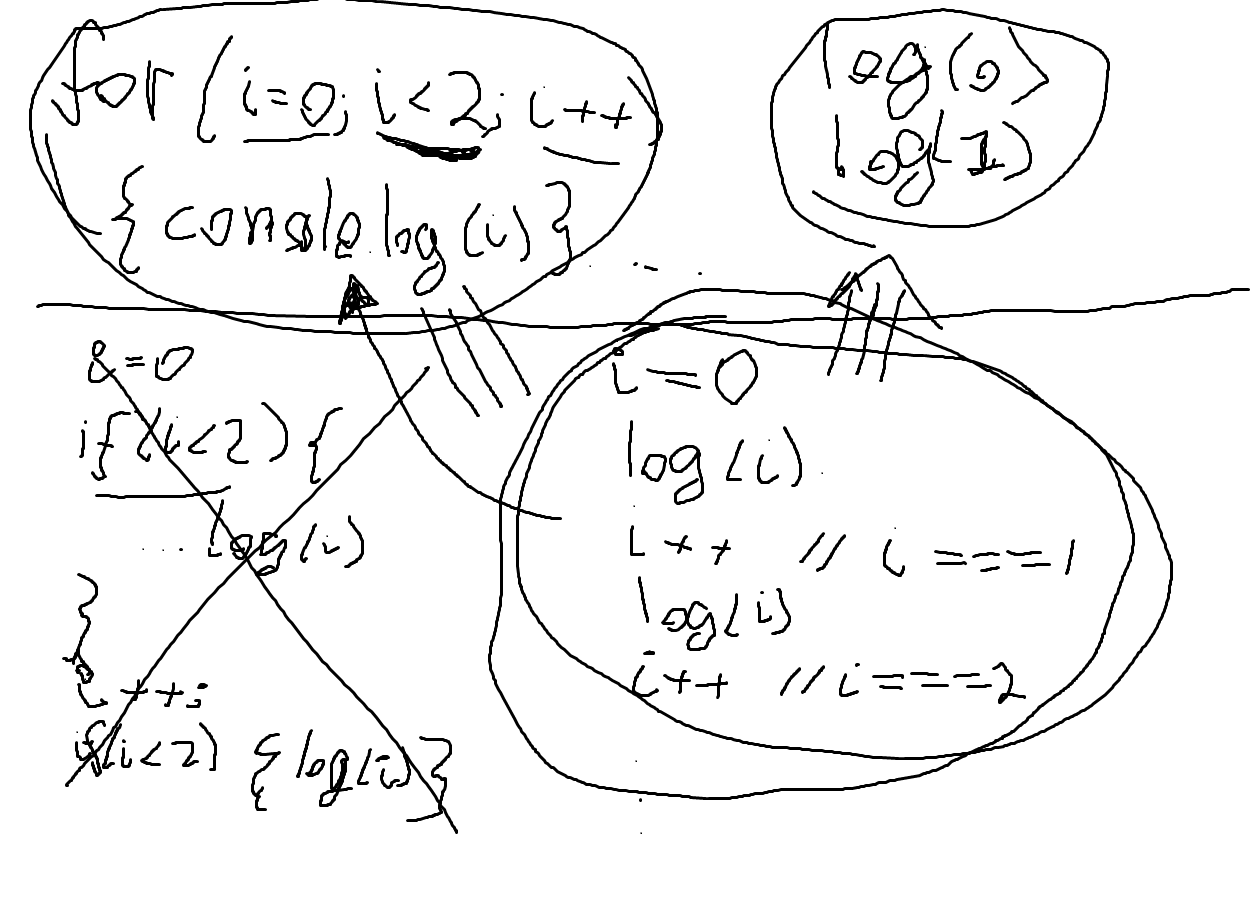 for ( i=0; i<2; i++
{ console.log(i) }
log(0)
log(1)
i=0
if(i<2) {
log(i)
}
i++;
if(i<2) { log(i) }
i=0
log(i)
i++ // i ===1
log(i)
i++ // i ===2